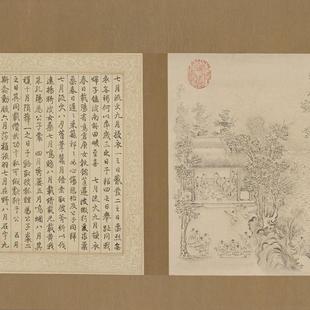 七月流火九月授衣一之日觱發二之日栗烈無
衣無褐何以卒歲三之日于耜四之日舉趾同我
婦子饁彼南畝田畯至喜 七月流火九月授衣
春日載陽有鳴倉庚女執懿筐遵彼微行爰求柔
桑春日遲遲采蘩祁祁女心傷悲殆及公子同歸
七月流火八月萑葦蠶月條桑取彼斧斨以伐
遠揚猗彼女桑七月鳴鵙八月載績載玄載黃我
朱孔陽為公子裳 四月秀葽五月鳴蜩八月其
穫十月隕蘀一之日于貉取彼狐貍為公子裘二
之日其同載纘武功言私其豵獻豜于公 五月
斯螽動股六月莎雞振羽七月在野八月在宇九